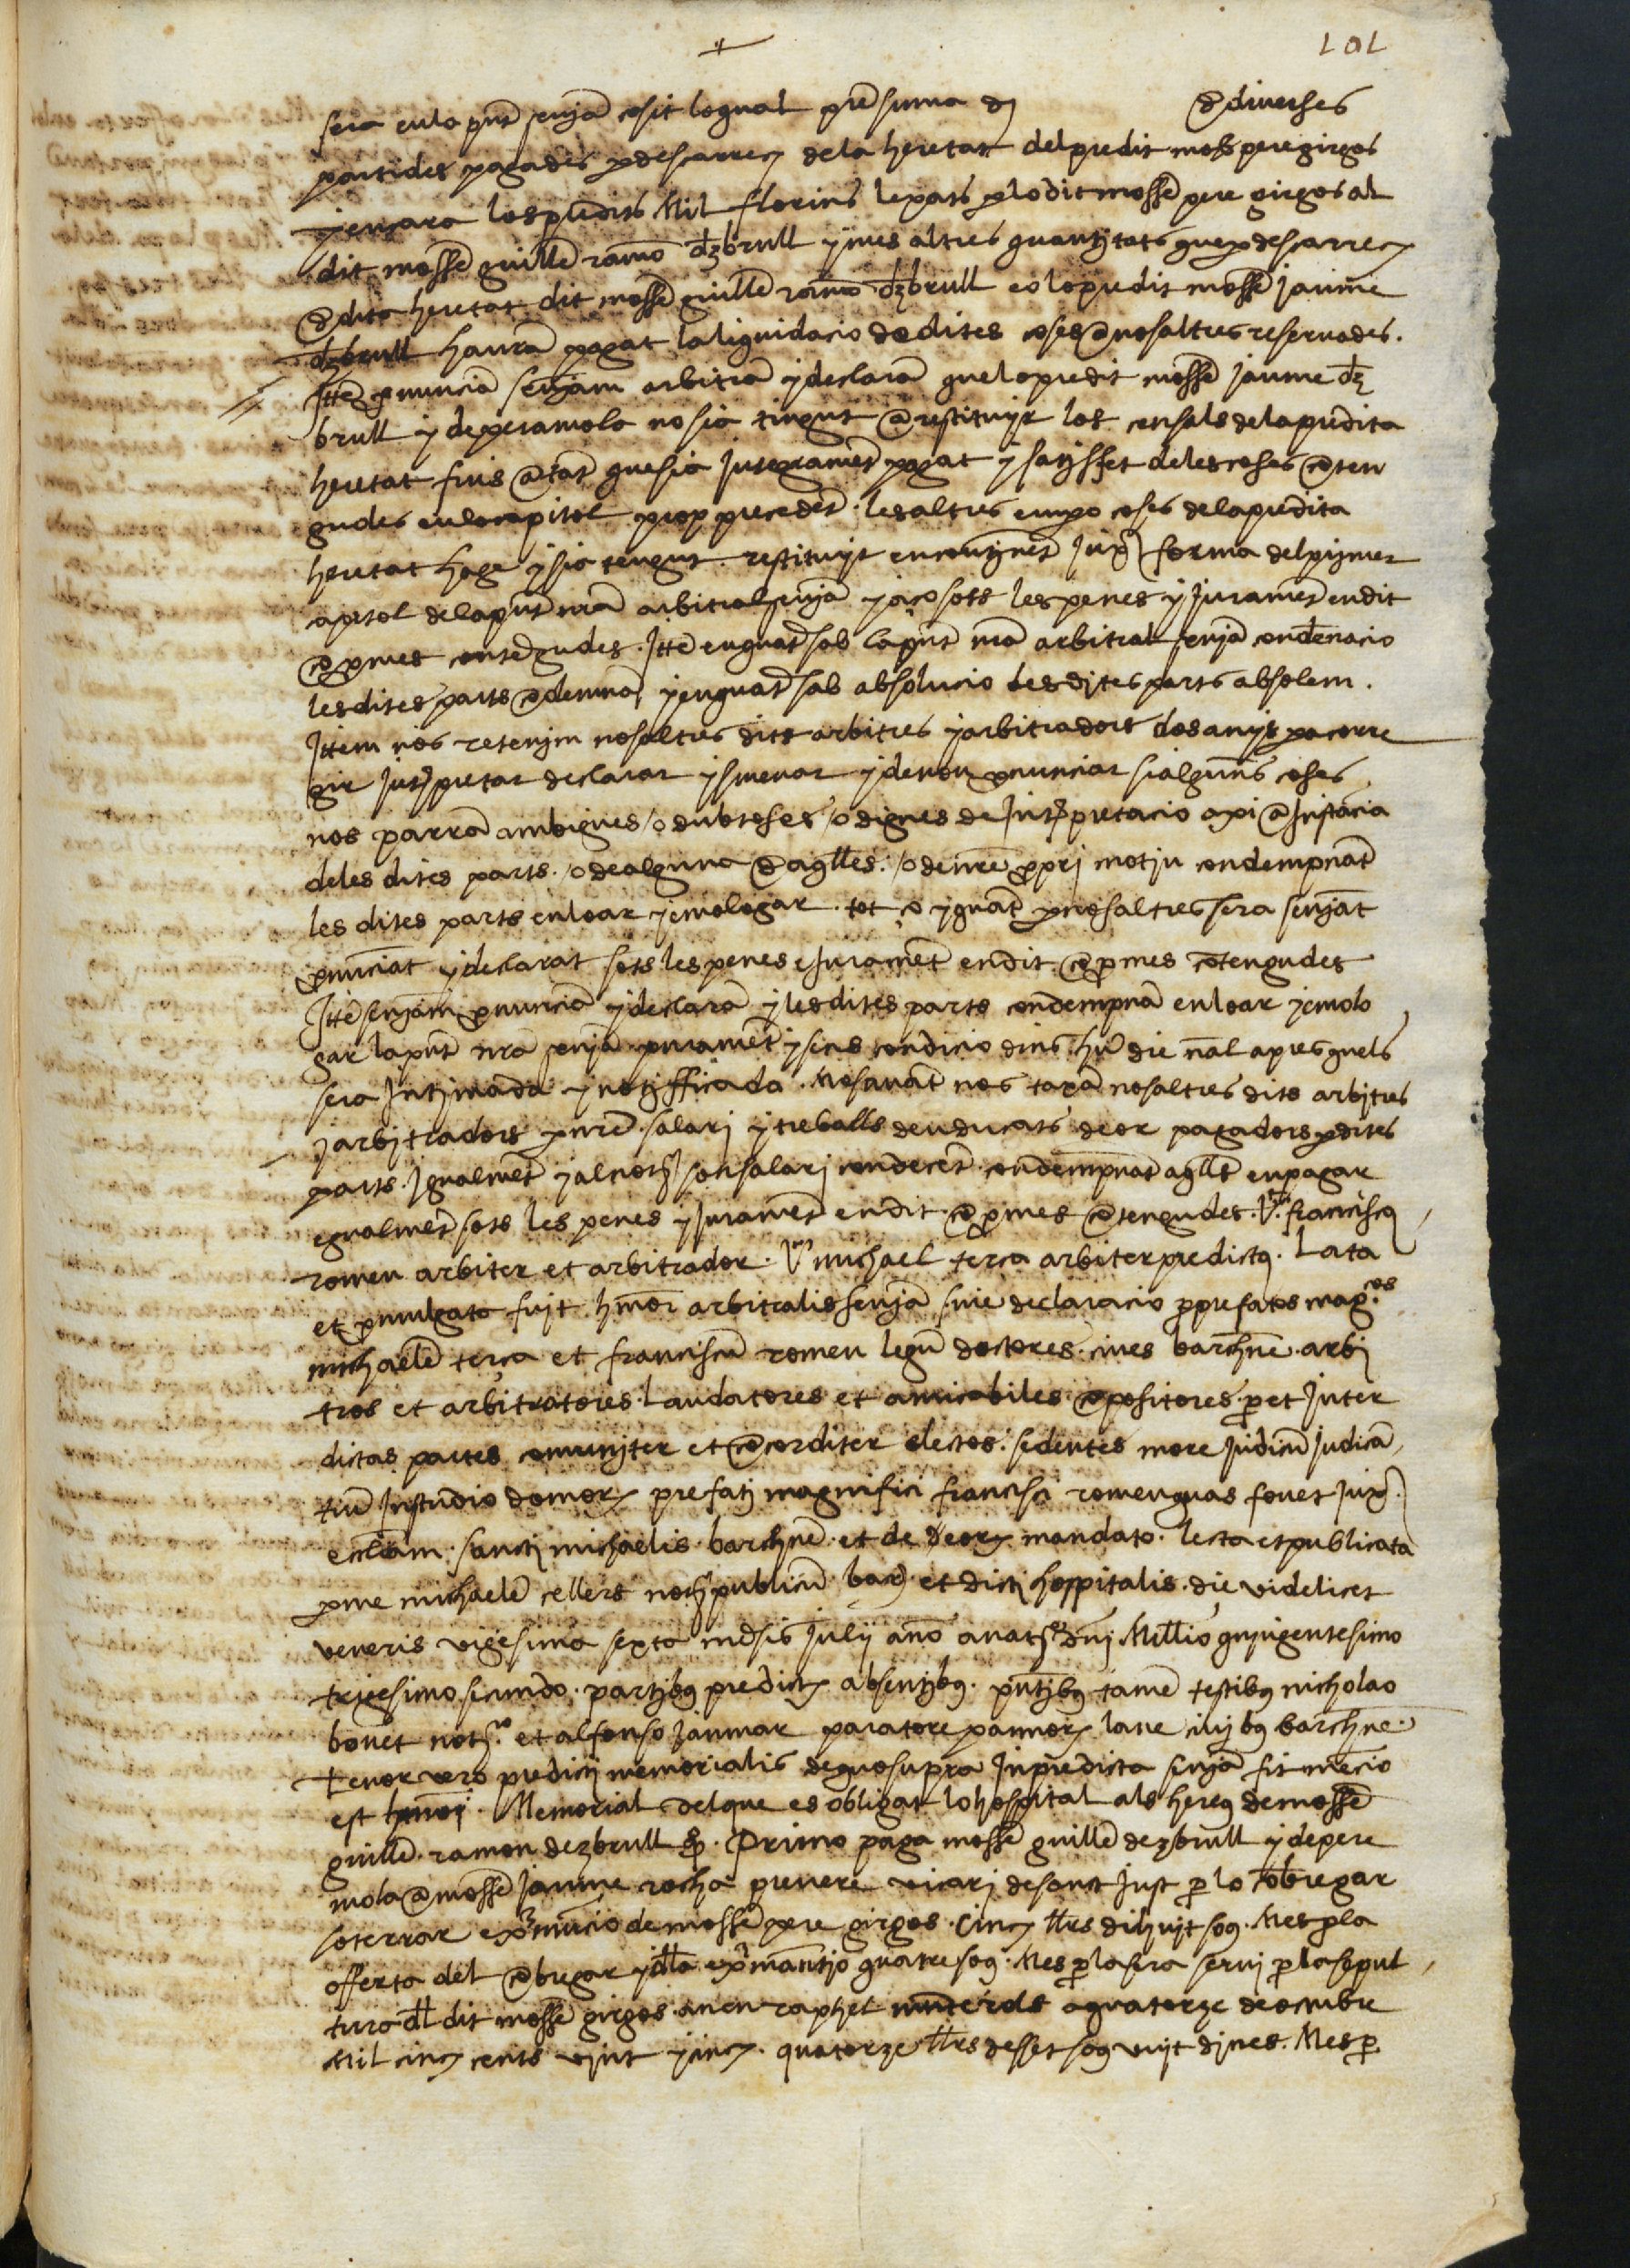 101
sera en la pnt senja cosit loqual pre suma de                de diuerses
partides pagades p descarrech de la heretat del predit moss pere girgos
y encara los predits Mil florins lexats p lo dit mosse pere girgos al
dit mosse guille ramo dezbrull y mes altres quantitats que p descarrech
de dita heretat dit mosse guille ramo dezbrull e o lo predit mosse jaume
dezbrull haura pagat la liquidacio de dites coses a nosaltres reseruades.
Ite pnuncia senjam arbitra y declara que lo predit mosse jaume dez
brull y de peramola no sia tingut a restituyr los censals de la predita
heretat fins a tat que sia jntegramet pagat y satisffet de les coses conten
gudes en lo capitol prop precedet. les altres empo coses de la predita
heretat hage y sia tengut restituyr encontinet juxa forma del primer
capitol de la pnt nra arbitral senja y aço sots les penes y jurament en dit
copmes contegudes. Ite en quat sob la pnt nra arbitral senja condenacio
les dites parts codemna y en quat sab absolucio les dites parts absolem.
Ittem nos retenim nosaltres dits arbitres y arbitradors dos anys pa corre
gir jnterpretar declarar y smenar y de nou pnunciar si algunes coses
nos parra ambigues / o dubtoses / o dignes de jnterpretacio axi a jnstacia
de les dites parts. / o de alguna de aqlles. / o de nre propri motiu condempnat
les dites parts en loar y emologar. tot ço y quat p nosaltres sera senjat
pnunciat y declarat sots les penes e jurament en dit copmes cotengudes
Ite senjam pnuncia y declara y les dites parts condempna en loar y emolo
gar la pnt nra senja purament y sens condicio dins hu die nal apres quels
sera jntimada y notifficada. Mes auat nos taxa nosaltres dits arbitres
y arbitradors p nre salari y treballs deu ducats de or pagadors p dites
parts. jgualmet y al not son salari condecet condempnat aqlls en pagar
egualmet sots les penes y jurament en dit copmes cotengudes. Vt franciscus
romeu arbiter et arbitrador. Vt michael terça arbiter predictus. Lata
et pmulgata fuit hmoi arbitralis senja siue declaracio p prefatos magcos
michaele terça et franciscu romeu legu doctores ciues barchne. arbi
tros et arbitratores laudatores et amicabiles copositores. p et jnter
dictas partes comuniter et cocorditer electos. sedentes more judicu judica
tiu jn studio domorum prefati magnifici francisci romeu quas fouet juxa
eccliam sancti michaelis barchne et de eorum mandato. lecta et publicata
p me michaele cellers not publicu bar. et dicti hospitalis. die videlicet
veneris vigesima sexta mesis julij ano a nat dni Millio quingentesimo
tricesimo secundo. partibus predictis absentibus. pntibus tame testibus nicholao
bonet not. et alfonso januar paratore pannorum lane ciuibus barchne.
Tenor vero predicti memorialis de quo supra jn predicta senja fit mecio
est hmoi. Memorial del que es obligat lo hospital als hereus de mosse
guille ramon dezbrull q. Primo paga mosse guille dezbrull y de pere
mola a mosse jaume rocha preuere vicari de sanct just p lo cobregar
soterrar e extremuncio de mosse pere girgos. Cinch llrs dihuyt sos. Mes p la
offerta del cobregar y dla extremauntio quatre sos. Mes p la sera serui p la sepul
tura dl dit mosse girgos an en raphel a quatorze de octubre
Mil cinch cents vint y cinch. quatorze llrs desset sos vuyt dines. Mes p